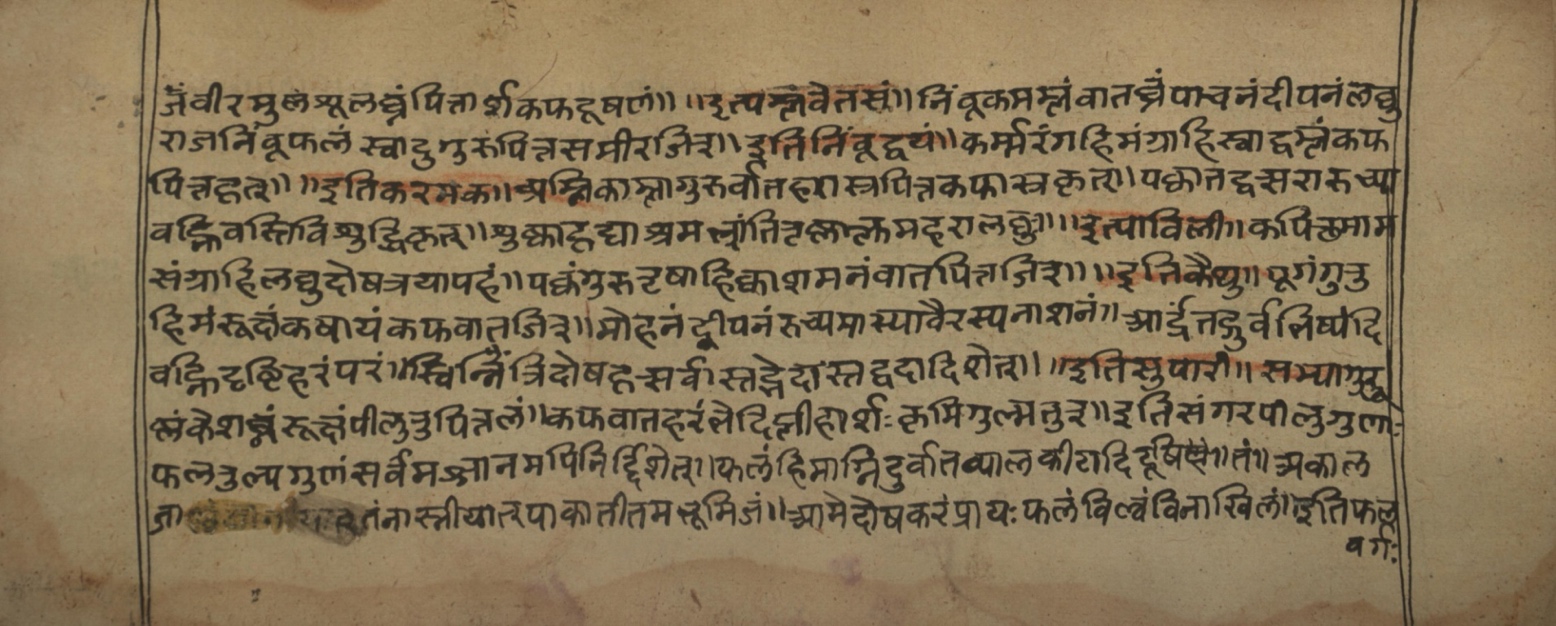 जंवीरमुलशूलघ्नंपित्तार्शकफदूषणं॥ ॥इत्पम्लवेतसं॥निंवूकमम्लंवातघ्नंपाचनंदीपनंलघु
राजनिंवूफलंस्वादुगुरुपित्तसमीरजित्॥इतिनिंवूद्वयं॥कर्म्मरंगहिमंग्राहिस्वाद्वम्लंकफ
पित्तहृत्॥ ॥इतिकरमक॥अम्लिकाम्लागुरुर्वातहरास्त्रपित्तकफास्त्रकृत्॥पक्वातद्वत्सरारुच्या
वह्निवस्तिविशुद्धिकृत्॥शुष्काहृद्याश्रमभ्रांतितृष्णाक्लमहरालघुः॥ ॥इत्पाविली॥कपित्थमाम
संग्राहिलघुदोषत्रयापहं॥पक्वंगुरुतृषाहिक्काशमनंवातपित्तजित्॥ ॥इतिकैथु॥पूगंगुरु
हिमंरूक्षंकषायंकफवातजित्॥मोहनंदीपनंरुच्यमास्यावैरस्पनाशनं॥आर्द्रंतद्गुर्वभिष्यंदि
वह्निदृष्टिहरंपरं॥स्विन्नंत्रिदोषहृत्सर्वास्तद्भेदास्तद्वदादिशेत्॥ ॥इतिसुपारी॥सम्यागुरू
ष्णंकेशघ्नंरूक्षंपीलुतुपित्तलं॥कफवातहरंभेदिप्लीहार्शःकृमिगुल्मनुत्॥इतिसंगरपीलुगुणाः
फलतुल्यगुणंसर्वमज्जानमपिनिर्द्दिशेत्॥फलंहिमाग्निदुर्वातव्यालकीटादिदूषितं॥अकाल
जा तंनास्नीयात्पाकातीतमभूमिजं॥आमेदोषकरंप्रायःफलंविल्वंविनाखिलं॥इतिफल
वर्गः